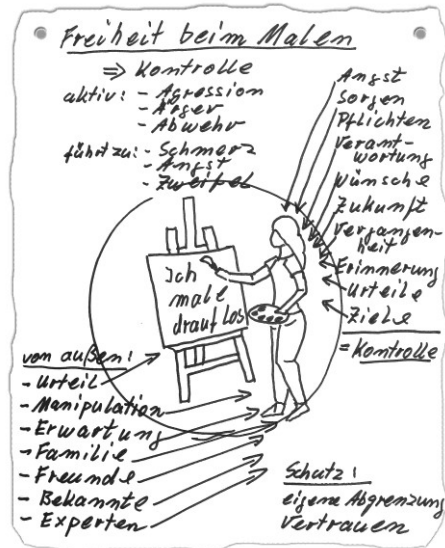 Freiheit beim Malen
⇒ Kontrolle
aktiv: - Agression
- Ärger
- Abwehr
führt zu: - Schmerz
- Angst
- Zweifel
Angst
Sorgen
Pflichten
Verant-
wortung
Wünsche
Zukunft
Vergangen-
heit
Erinnerung
Urteile
Ziele
= Kontrolle
Ich
male
drauf los
von außen:
- Urteil
- Manipulation
- Erwartung
- Familie
- Freunde
- Bekannte
- Experten
Schutz:
eigene Abgrenzung
Vertrauen